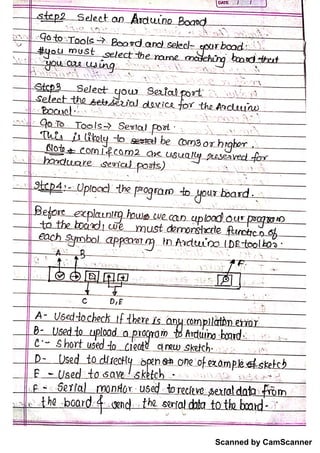 DATE
Step2 Select an Arduino Board
Go to Tools → Board and select your board.
#you must select the name matching board that
you are using
Step3 Select your Serial port
select the serial device for the Arduino
Board.
Go To Tools → Serial Port.
This is likely to be com3 or higher.
(Note com1 & com2 are usually reserved for
hardware serial ports)
Step4:- Upload the program to your board.
Before explaining how we can upload our program
to the board, we must demonstrate function of
each symbol appearing in Arduino IDE toolbar.
A B F
C D,E
A- Used to check if there is any compilation error
B- Used to upload a program to Arduino board.
C- Short used to create a new sketch.
D- Used to directly open one of example sketch
E - Used to save sketch.
F - Serial monitor used to recieve serial data from
the board & send the serial data to the board.
Scanned by CamScanner